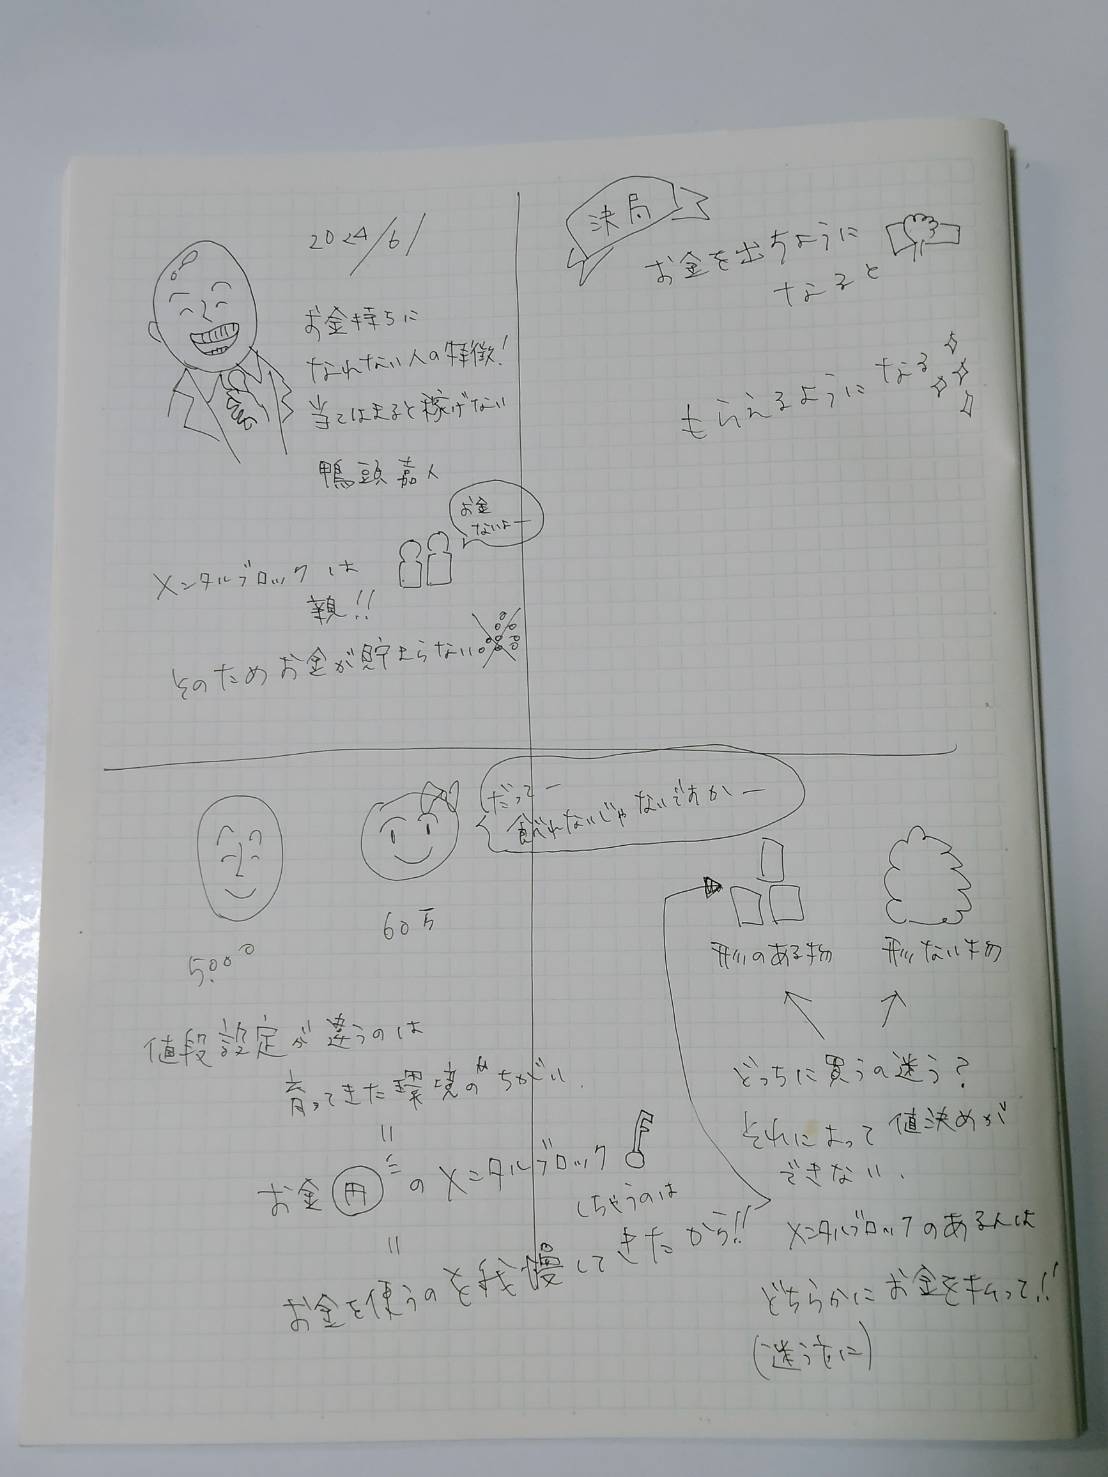 2024/6/1
お金持ちに
なれない人の特徴!
当てはまると稼げない
鴨頭嘉人
お金
ないよー
メンタルブロックは
親!!
そのためお金が貯まらない。
決局
お金を出ちように
なると
もらえるようになる
5000
60万
だってー
食べれないじゃないですかー
値段設定が違うのは
育ってきた環境の ちがい.
お金 円 のメンタルブロック
しちゃうのは
お金を使うのを我慢してきたから!!
形のある物
形ない物
どっちに買うの迷う?
それによって値決めが
できない.
メンタルブロックのある人は
どちらかにお金を払って!!
(迷う方に)